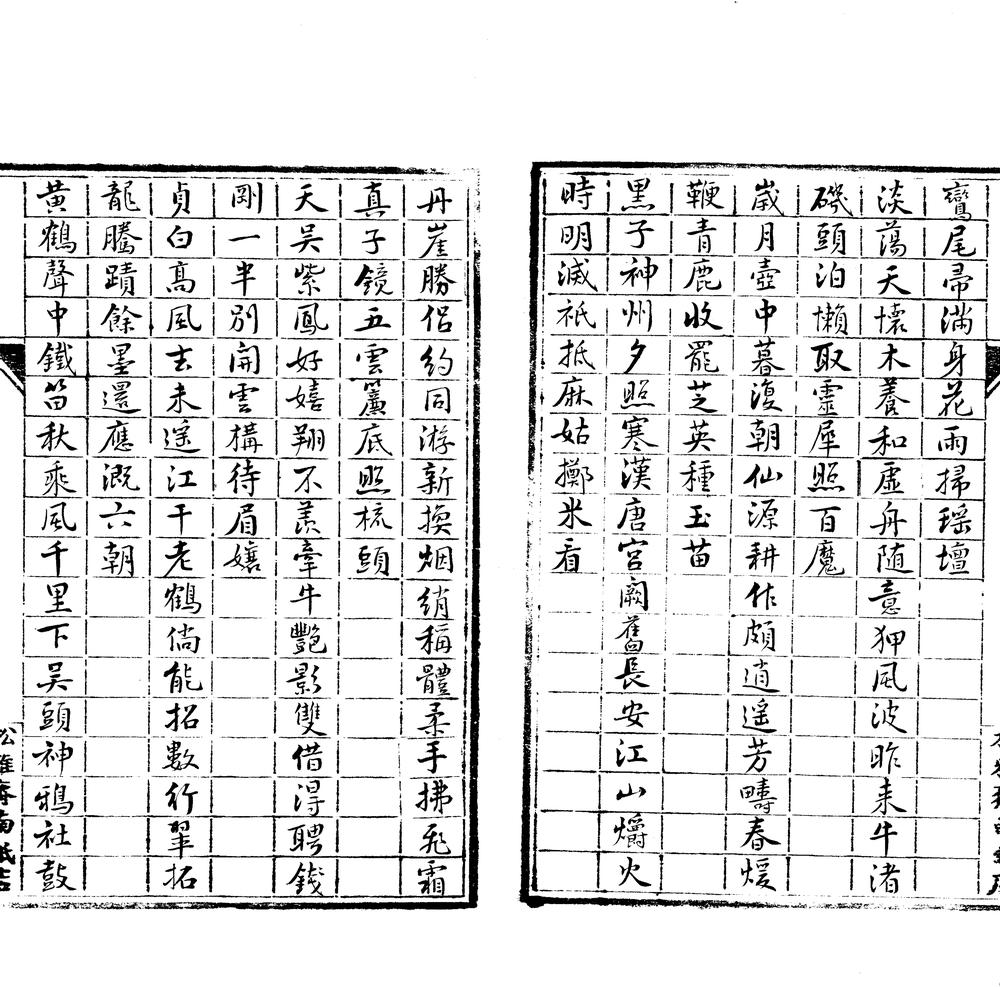 鸞尾帚滿身花雨掃瑶壇
淡蕩天懷木養和虛舟随意狎風波昨来牛渚
磯頭泊懶取靈犀照百魔
嵗月壺中暮復朝仙源耕作頗逍遥芳疇春煖
鞭青鹿收罷芝英種玉苗
黑子神州夕照寒漢唐宮闕舊長安江山爝火
時明滅祇抵麻姑擲米看
丹崖勝侣約同游新換烟綃稱體柔手拂飛霜
真子鏡五雲簾底照梳頭
天吴紫鳳好嬉翔不羨牽牛艷影雙借淂聘錢
剛一半別開雲構待眉嬉
貞白高風去未遥江干老鶴倘能招數行翠拓
龍騰蹟餘墨還應溉六朝
黄鶴聲中鐵笛秋乘風千里下吴頭神鴉社鼓